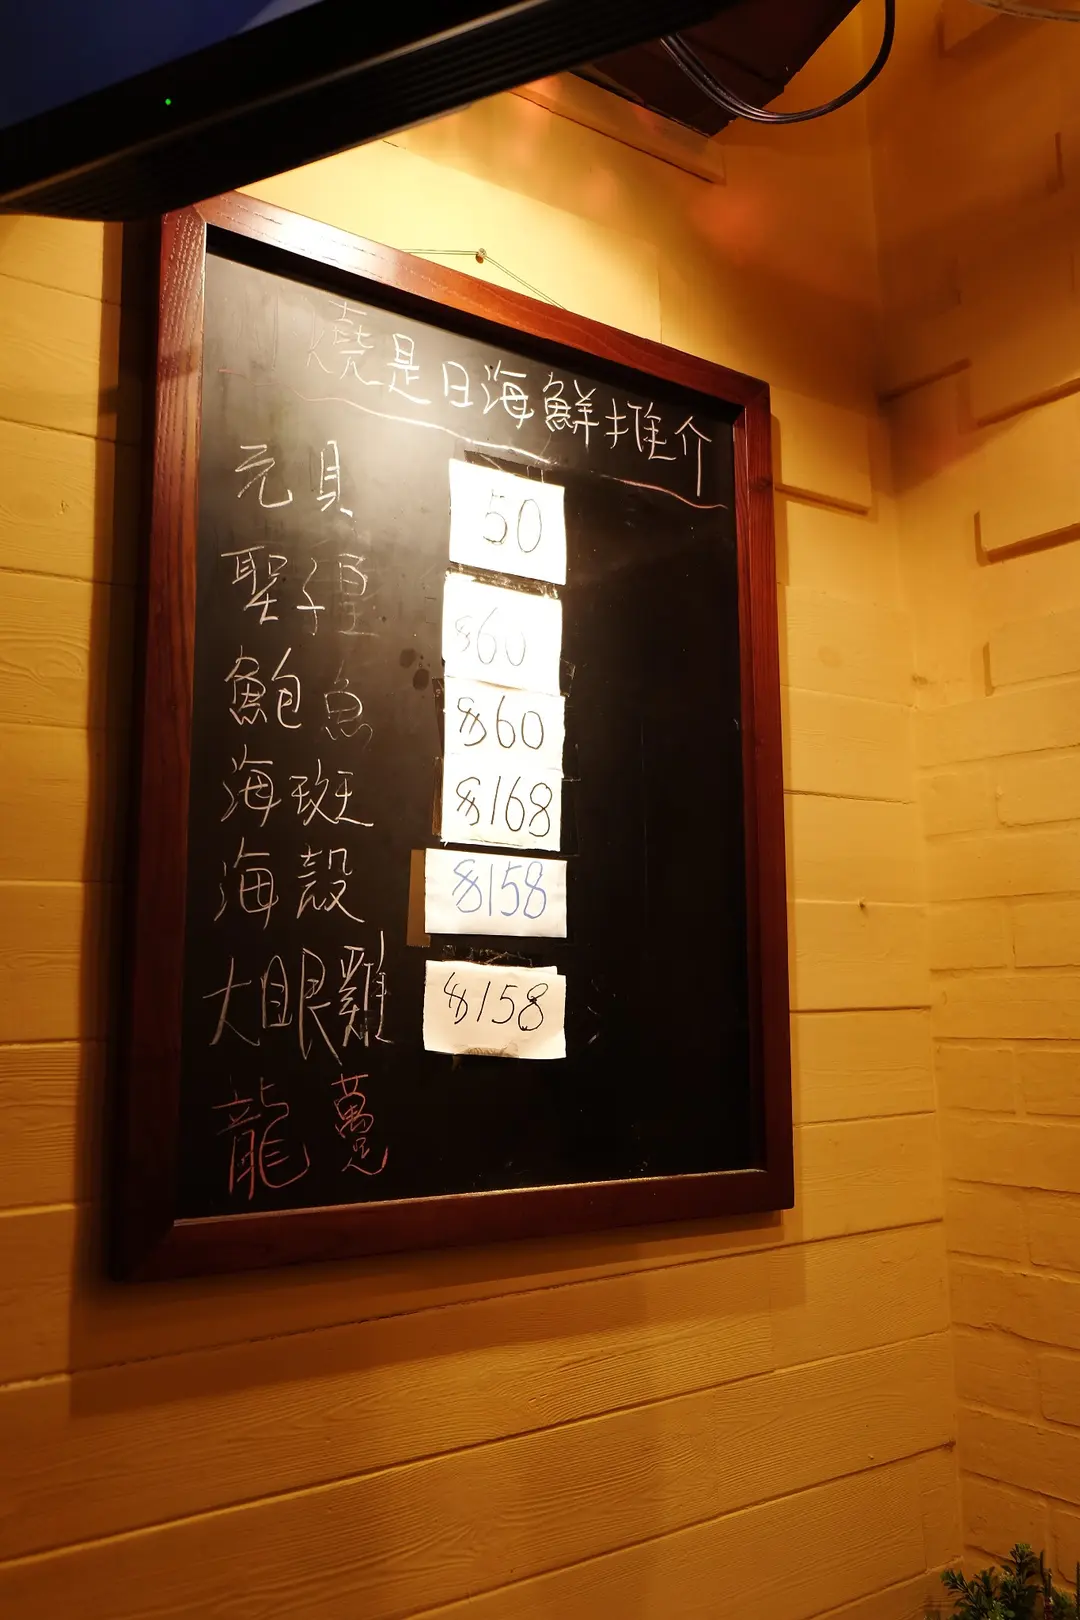 燒是日海鮮推介
元貝 50
聖子皇 $60
鮑魚 $60
海斑 $168
海殼 $158
大眼雞 $158
龍躉